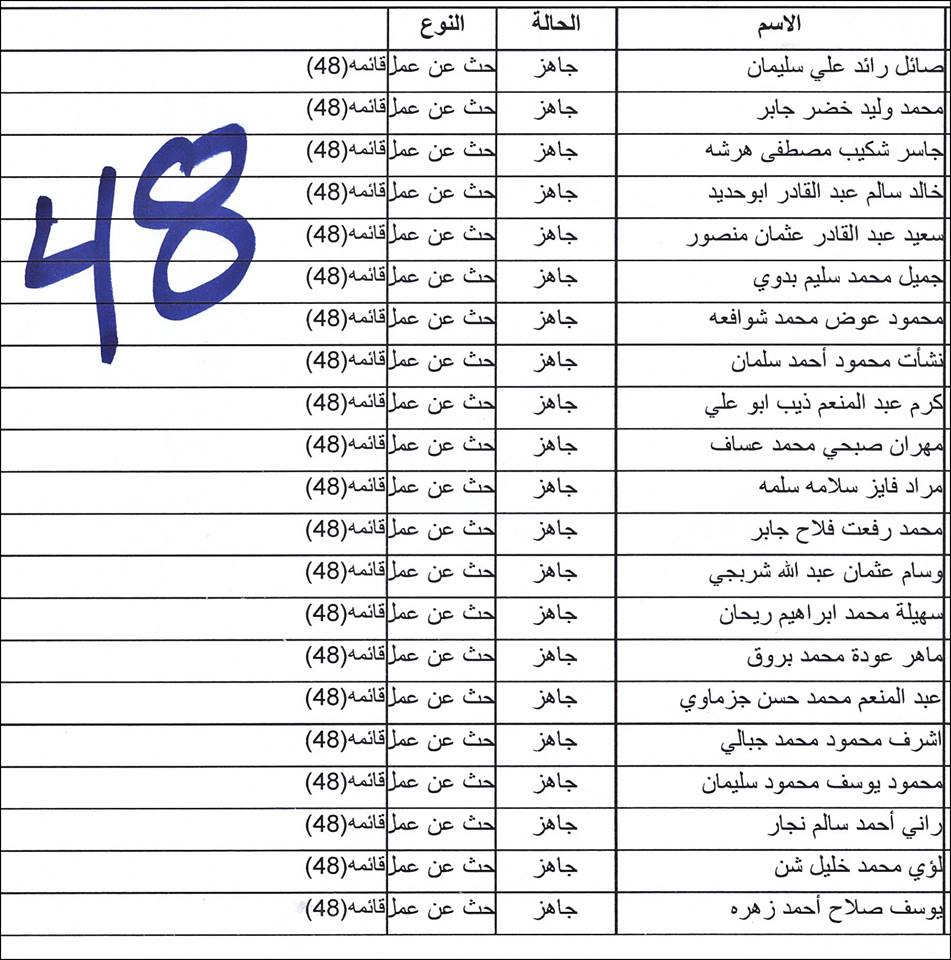 الاسم الحالة النوع
صائل رائد علي سليمان جاهز حث عن عمل قائمه(48)
محمد وليد خضر جابر جاهز حث عن عمل قائمه(48)
جاسر شكيب مصطفى هرشه جاهز حث عن عمل قائمه(48)
خالد سالم عبد القادر ابوحديد جاهز حث عن عمل قائمه(48)
سعيد عبد القادر عثمان منصور جاهز حث عن عمل قائمه(48)
جميل محمد سليم بدوي جاهز حث عن عمل قائمه(48)
محمود عوض محمد شوافعه جاهز حث عن عمل قائمه(48)
نشأت محمود أحمد سلمان جاهز حث عن عمل قائمه(48)
كرم عبد المنعم ذيب ابو علي جاهز حث عن عمل قائمه(48)
مهران صبحي محمد عساف جاهز حث عن عمل قائمه(48)
مراد فايز سلامه سلمه جاهز حث عن عمل قائمه(48)
محمد رفعت فلاح جابر جاهز حث عن عمل قائمه(48)
وسام عثمان عبد الله شربجي جاهز حث عن عمل قائمه(48)
سهيلة محمد ابراهيم ريحان جاهز حث عن عمل قائمه(48)
ماهر عودة محمد بروق جاهز حث عن عمل قائمه(48)
عبد المنعم محمد حسن جزماوي جاهز حث عن عمل قائمه(48)
اشرف محمود محمد جبالي جاهز حث عن عمل قائمه(48)
محمود يوسف محمود سليمان جاهز حث عن عمل قائمه(48)
راني أحمد سالم نجار جاهز حث عن عمل قائمه(48)
لؤي محمد خليل شن جاهز حث عن عمل قائمه(48)
يوسف صلاح أحمد زهره جاهز حث عن عمل قائمه(48)
48